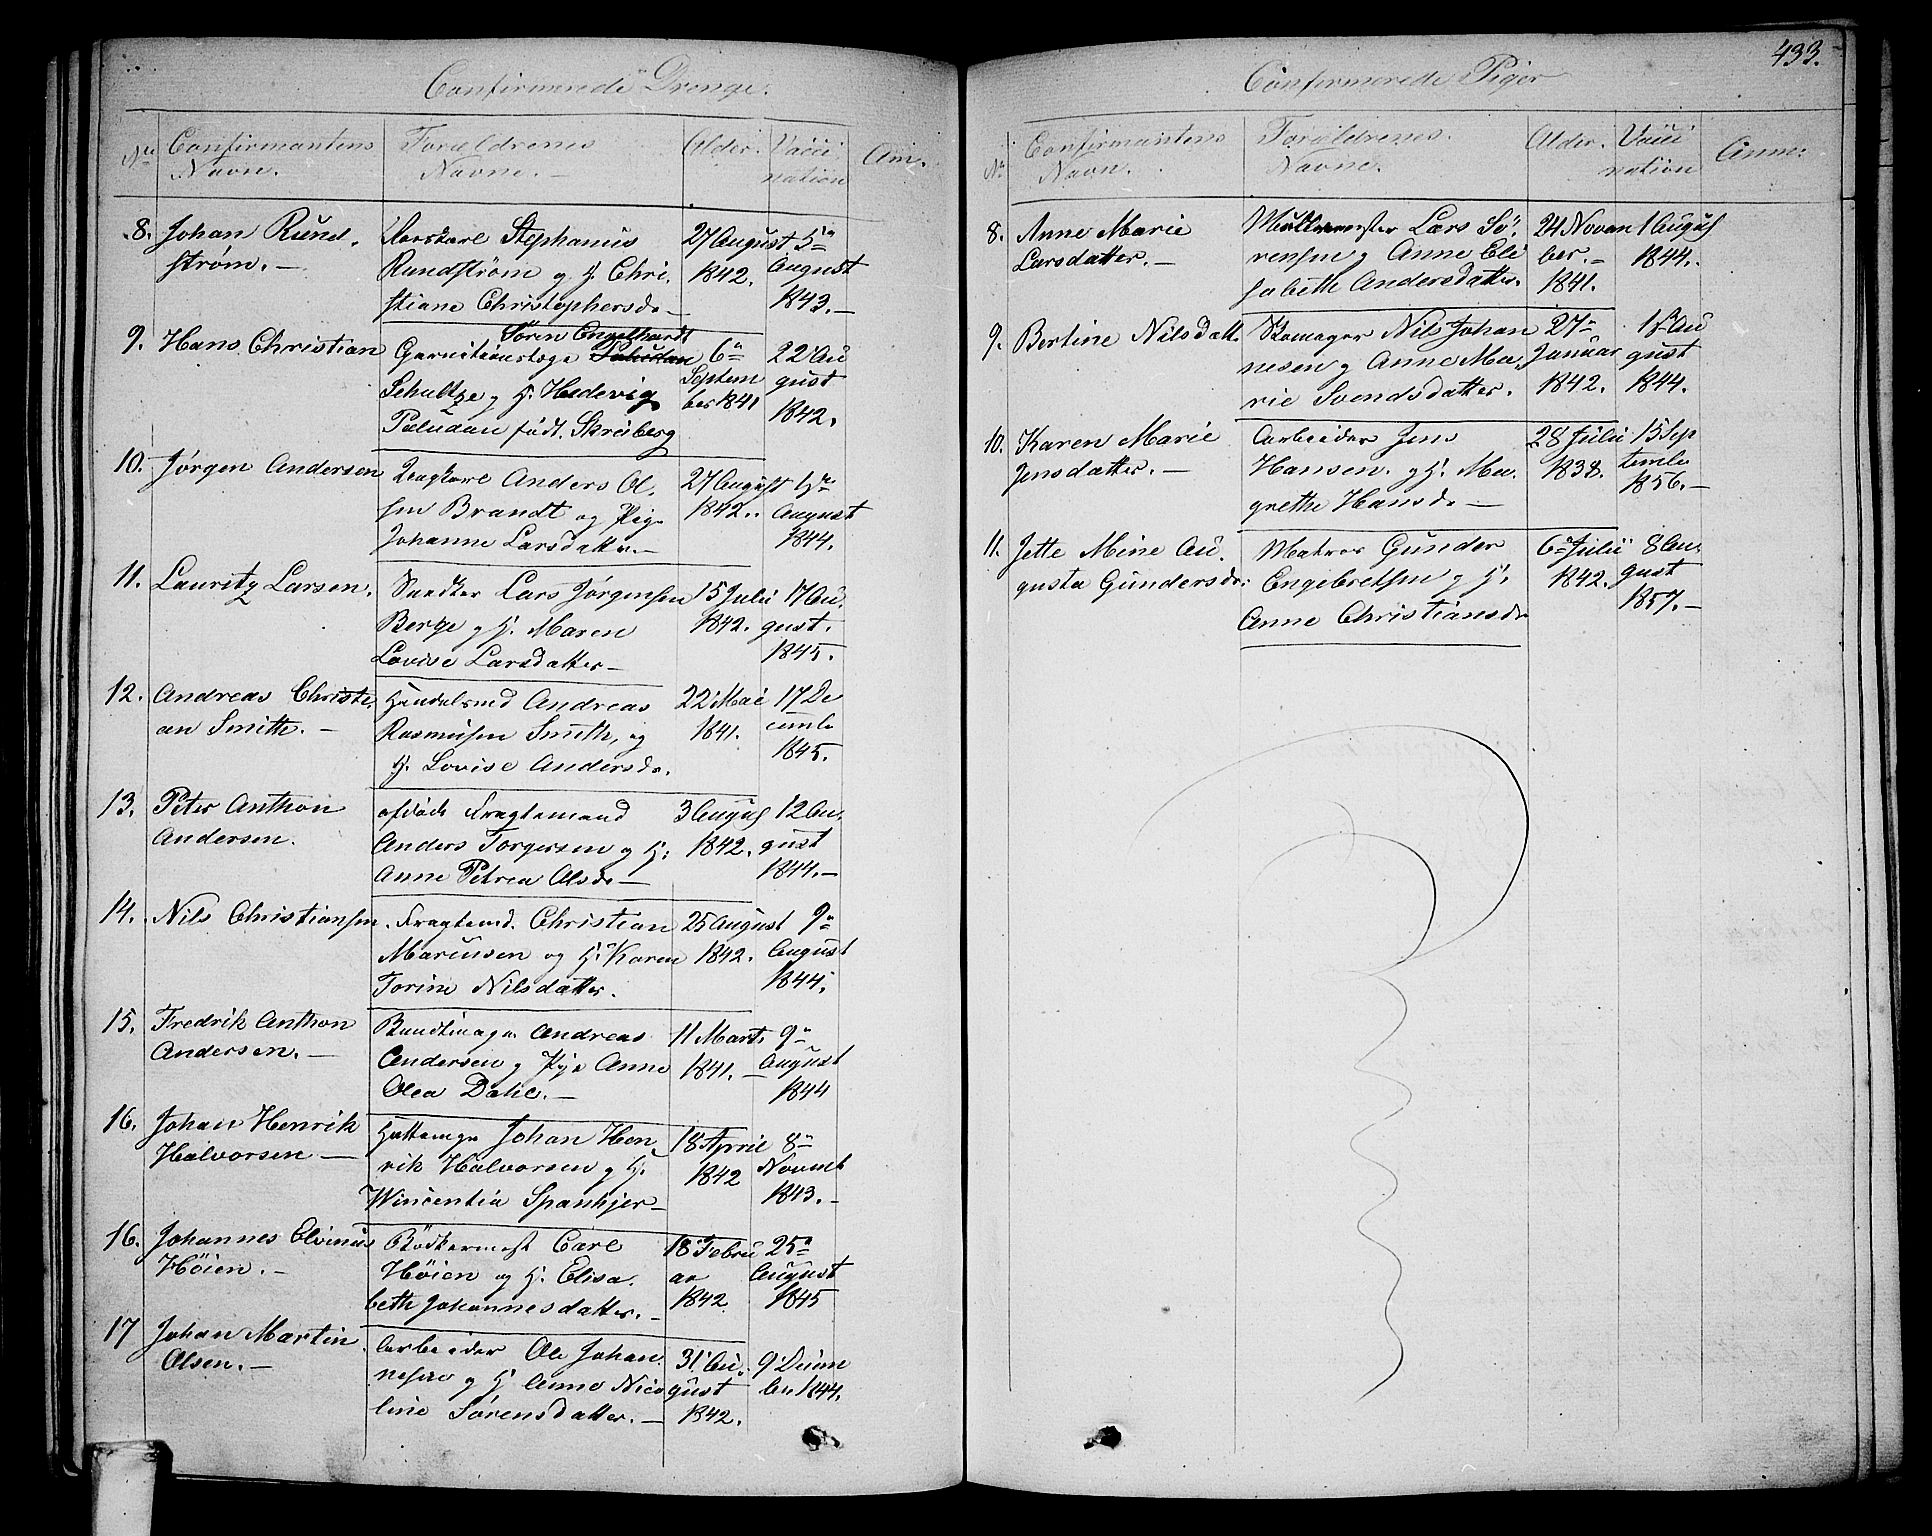 433.
Confirmerede Drenge.
No Confirmantens Navn. Forældrenes Navne. Alder. Vacci nation Am.
8. Johan Rund, strøm. —
Stephanus
Rundstrøm og H. Chri,
stiane Christophersd. —
27 August 1842.
5te August 1843. —
9. Hans Christian
Søren Engelhardt
Garnisonslæge
Schultze og H. Hedevig
Paludan født Skreiberg
6te Septem ber 1841
22 Au gust 1842.
10. Jørgen Andersen
Anders Ol,
sen Brandt og Pig
Johanne Larsdatter. —
27 August 1842.
August 1844.
11. Lauritz Larsen.
Lars Jørgensen
Berge og H. Maren
Lovise Larsdatter —
15 Julii 1842.
17 Au, gust. 1845.
12. Andreas Christi, an Smith. —
Handelsmd Andreas
Rasmusen Smith, og
H. Lovise Andersd.
22 Mai 1841.
17 De cemb 1845.
13. Peter Anthon Andersen.
afdøde Fragtemand
Anders Torgersen og H:
Anne Petrea Olsd. —
3 August 1842.
12 Au, gust 1844. —
14. Nils Christiansen
Fragtemd. Christian
Mareusen og H. Karen
Torine Nilsdatter.
25 August 1842.
9de August 1844.
15. Fredrik Anthon Andersen. —
Bundtmager Andreas
Andersen og Pige Anne
Olea Dahl. —
11 Marts 1841. —
9de August 1844
16. Johan Henrik Halvorsen —
Hattemager Johan Hen
rik Halvorsen og H.
Wincentia Spanhjer —
18 April 1842
8de Novemb 1843. —
16. Johannes Elvinus Høien. —
Bødkermest Carl
Høien og H. Elisa,
beth Johannesdatter. —
18 Febru ar 1842
25de August 1845
17 Johan Martin Olsen. —
Arbeider Ole Johan,
nesen og H. Anne Nico
line Sørensdatter. —
31 Au, gust 1842.
9 Decem ber 1844.
Confirmerede Piger
No Confirmantens Navn. Forældrenes Navne. Alder. Vacci nation Anm:
8. Anne Marie Larsdatter. —
Lars Sø,
rensen og Anne Eli
sabeth Andersdatter.
24 Novem ber. — 1841.
1 August 1844.
9. Bertine Nilsdatt.
Skomager Nils Johan
nesen og Anne Ma,
rie Svendsdatter.
27de Januar 1842.
Au gust 1844.
10. Karen Marie Jensdatter. —
Arbeider Jens
Hansen og H. Ma.
grethe Hansd. —
28 Julii 1838.
15 Sep temb 1856. —
11. Jette Mine Au, gusta Gundersd.
Matros Gunder
Engebretsen og H.
Anne Christiansd.
6te Julii 1842.
8 Au, gust 1857. —